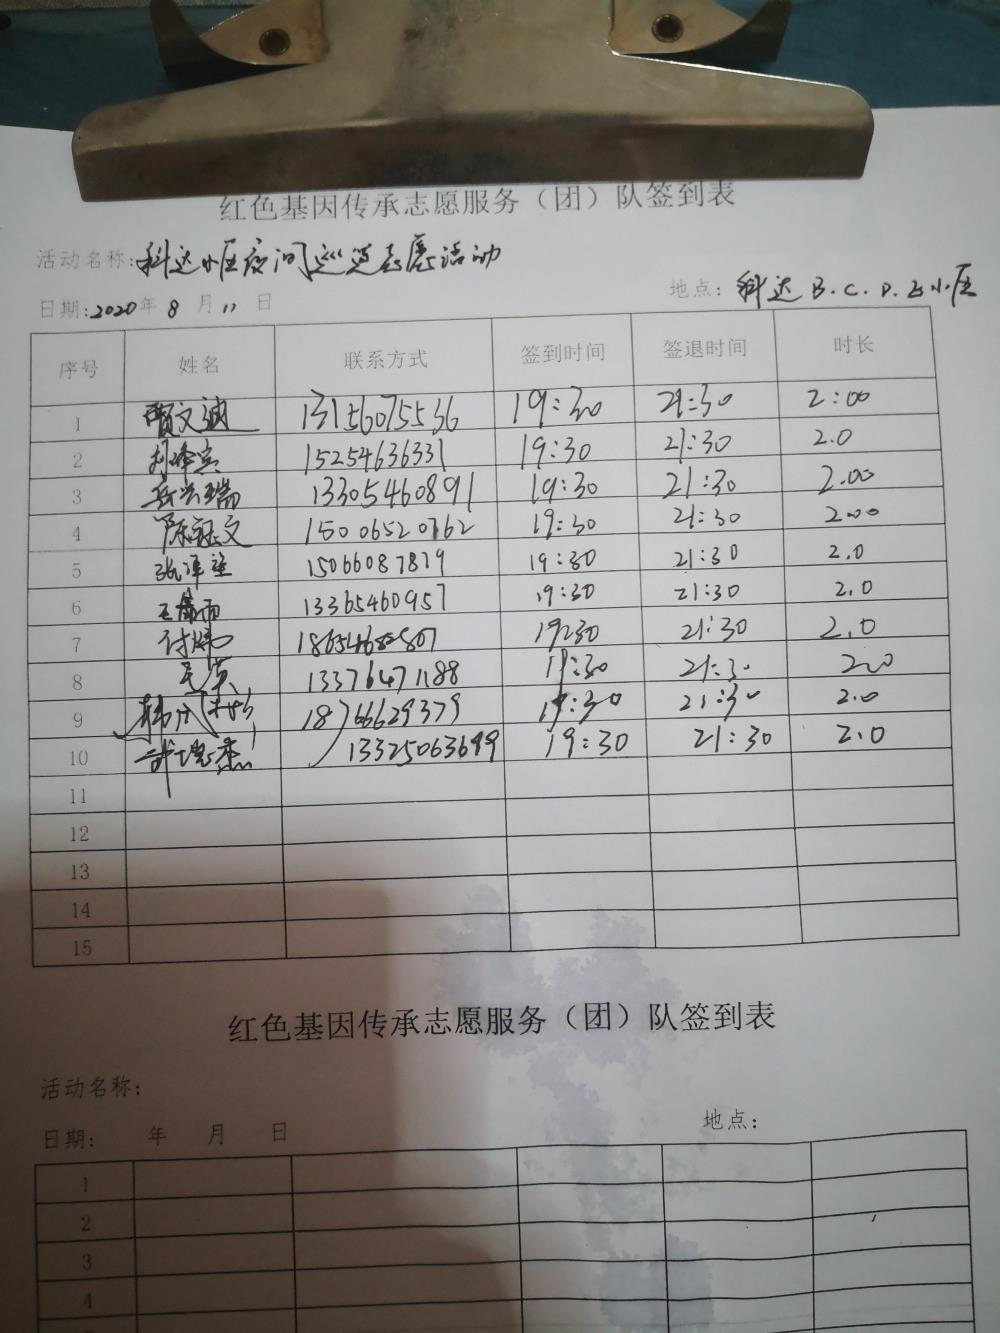 红色基因传承志愿服务（团）队签到表
活动名称：科达小区夜间巡逻志愿活动
日期：2020年 8 月 11 日 地点：科达 B.C.D.E小区
序号 姓名 联系方式 签到时间 签退时间 时长
1 贾文迪 13156075536 19:30 21:30 2:00
2 15254636331 19:30 21:30 2.0
3 13305460891 19:30 21:30 2.00
4 陈冠文 15006520762 19:30 21:30 2.00
5 15066087819 19:30 21:30 2.0
6 13365460957 19:30 21:30 2.0
7 付炜 19:30 21:30 2.0
8 毛英 13376471188 19:30 21:30 2.0
9 18766629379 19:30 21:30 2.0
10 13325063699 19:30 21:30 2.0
11
12
13
14
15
红色基因传承志愿服务（团）队签到表
活动名称：
日期： 年 月 日 地点：
1
2
3
4